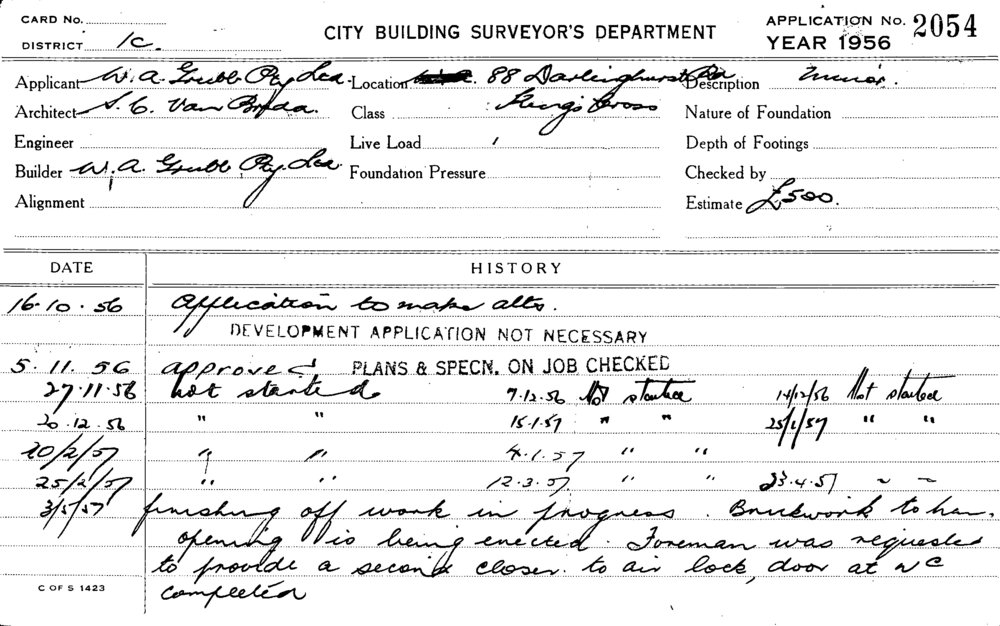 CARD No.
DISTRICT 1c.
CITY BUILDING SURVEYOR'S DEPARTMENT
APPLICATION No. 2054
YEAR 1956
Applicant W. A. Grubb Pty. Ltd Location 88 Darlinghurst Rd Description Minor.
Architect S. C. Van Breda. Class Kings Cross Nature of Foundation
Engineer Live Load Depth of Footings
Builder W. A. Grubb Pty. Ltd. Foundation Pressure Checked by
Alignment Estimate £500.
DATE HISTORY
16.10.56 Application to make alts.
DEVELOPMENT APPLICATION NOT NECESSARY
5.11.56 approved PLANS & SPECN. ON JOB CHECKED
27.11.56 not started 7.12.56 Not started 14/12/56 Not started
20.12.56 " " 15.1.57 " " 25/1/57 " "
20/2/57 " " 4.1.57 " "
25/2/57 " " 12.3.57 " " 23.4.57 ~ ~
3/5/57 finishing off work in progress. Brickwork to
opening is being erected. Foreman was requested
to provide a second closer to air lock, door at WC
completed
C OF S 1423